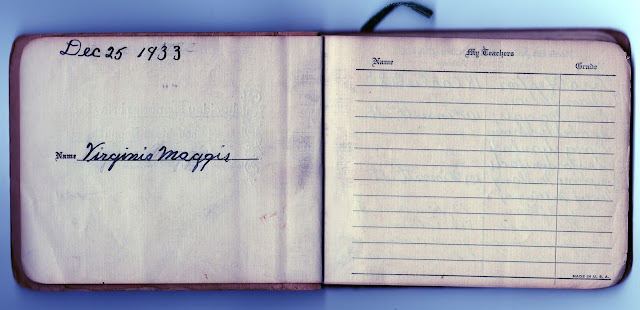 Dec 25 1933
Name Virginia Maggis
My Teachers
Name Grade
MADE IN U. S. A.